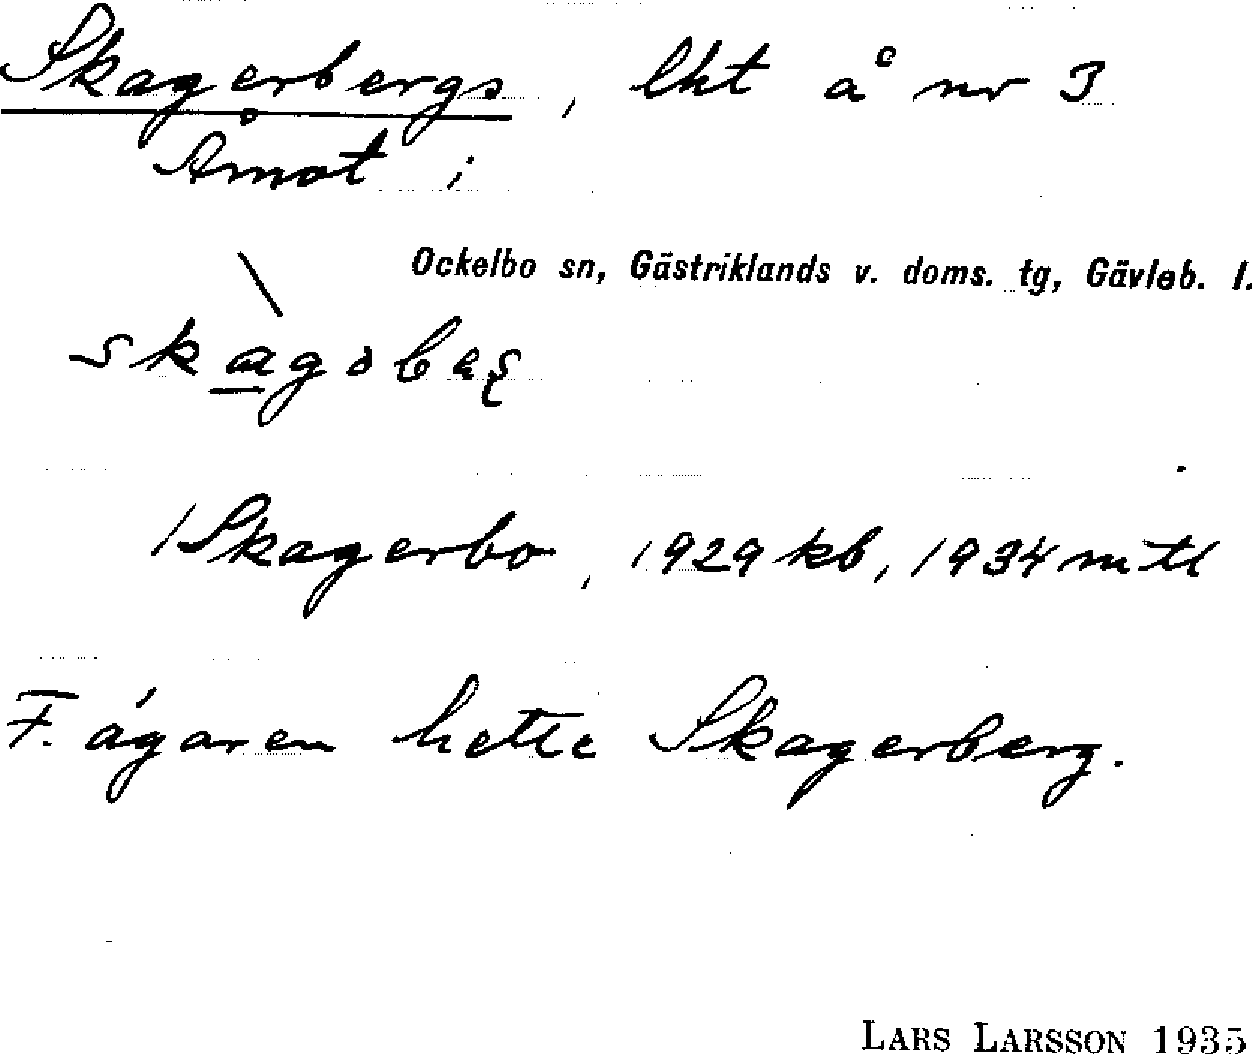 Skagerbergs, lht å nr 3
Åmot i
Ockelbo sn, Gästriklands v. doms. tg, Gävleb. l.
/Skagerbo, 1929 kb, 1934 mtl
F. ägaren hette Skagerberg.
LARS LARSSON 1935